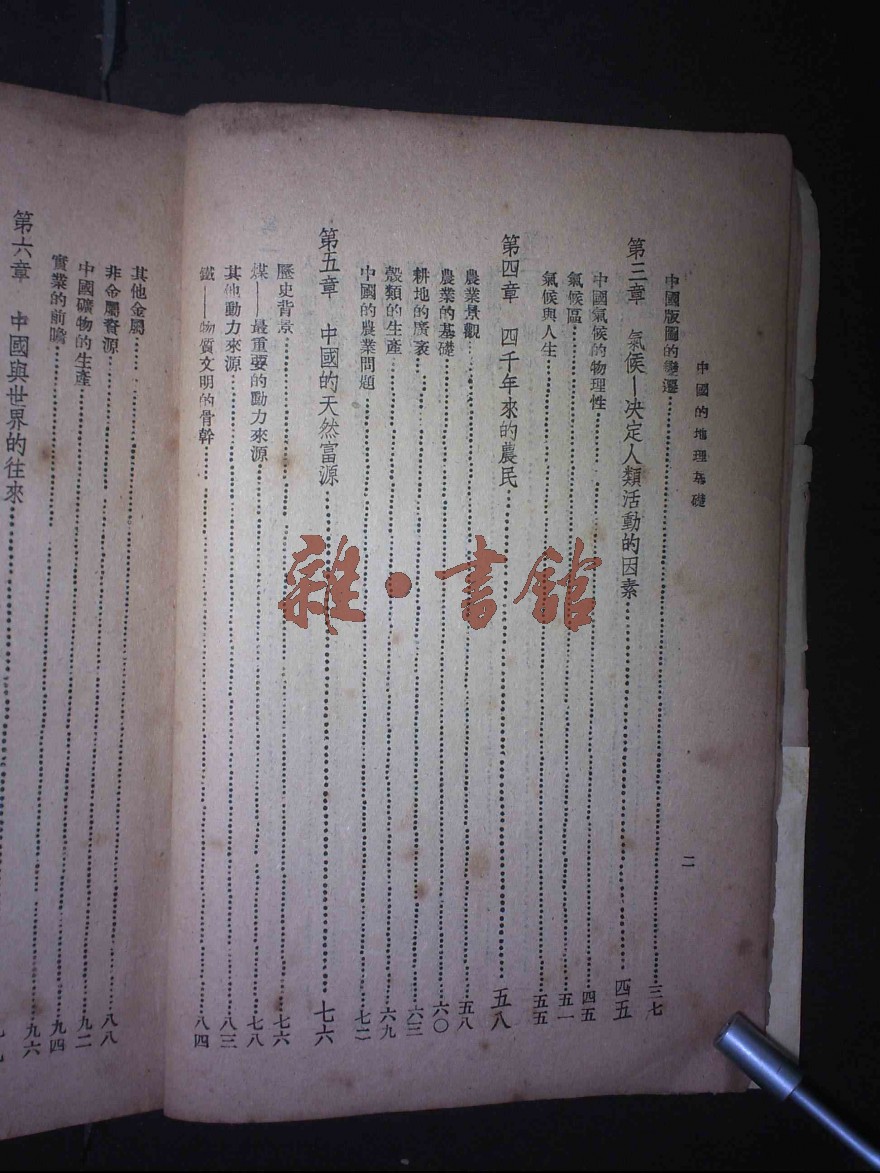 中國的地理基礎
二
中國版圖的變遷 三七
第三章 氣候—決定人類活動的因素 四五
中國氣候的物理性 四五
氣候區 五一
氣候與人生 五五
第四章 四千年來的農民 五八
農業景觀 五八
農業的基礎 六〇
耕地的廣袤 六三
穀類的生產 六九
中國的農業問題 七二
第五章 中國的天然富源 七六
歷史背景 七六
煤——最重要的動力來源 七八
其他動力來源 八三
鐵——物質文明的骨幹 八四
其他金屬 八八
非金屬資源 九二
中國礦物的生產 九四
實業的前瞻 九六
第六章 中國與世界的往來
雜·書館